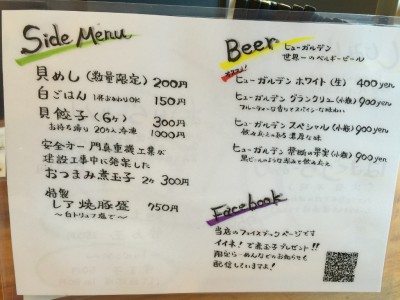 Side Menu
貝めし(数量限定) 200円
白ごはん 1杯おかわりOK 150円
貝餃子(6ヶ) 300円
お持ち帰り 20ヶ入 冷凍 1000円
安全カー 門真重機工業が
建設工事中に発案した
おつまみ煮玉子 2ヶ 300円
特製
レア焼豚盛 750円
〜白トリュフ塩で〜
Beer
ヒューガルデン
世界一のベルギービール
オススメ!
ヒューガルデン ホワイト(生) 400yen
ヒューガルデン グランクリュ(小瓶) 900yen
フルーティーな香りでスパイシーな味わい
ヒューガルデン スペシャル(小瓶) 900yen
飲みごたえのある濃厚な味
ヒューガルデン 禁断の果実(小瓶) 900yen
黒ビールのような深みで飲みごたえ
Facebook
当店のフェイスブックページです
イイネ!で煮玉子プレゼント!!
限定らーめんなどのお知らせも
配信していますよ!